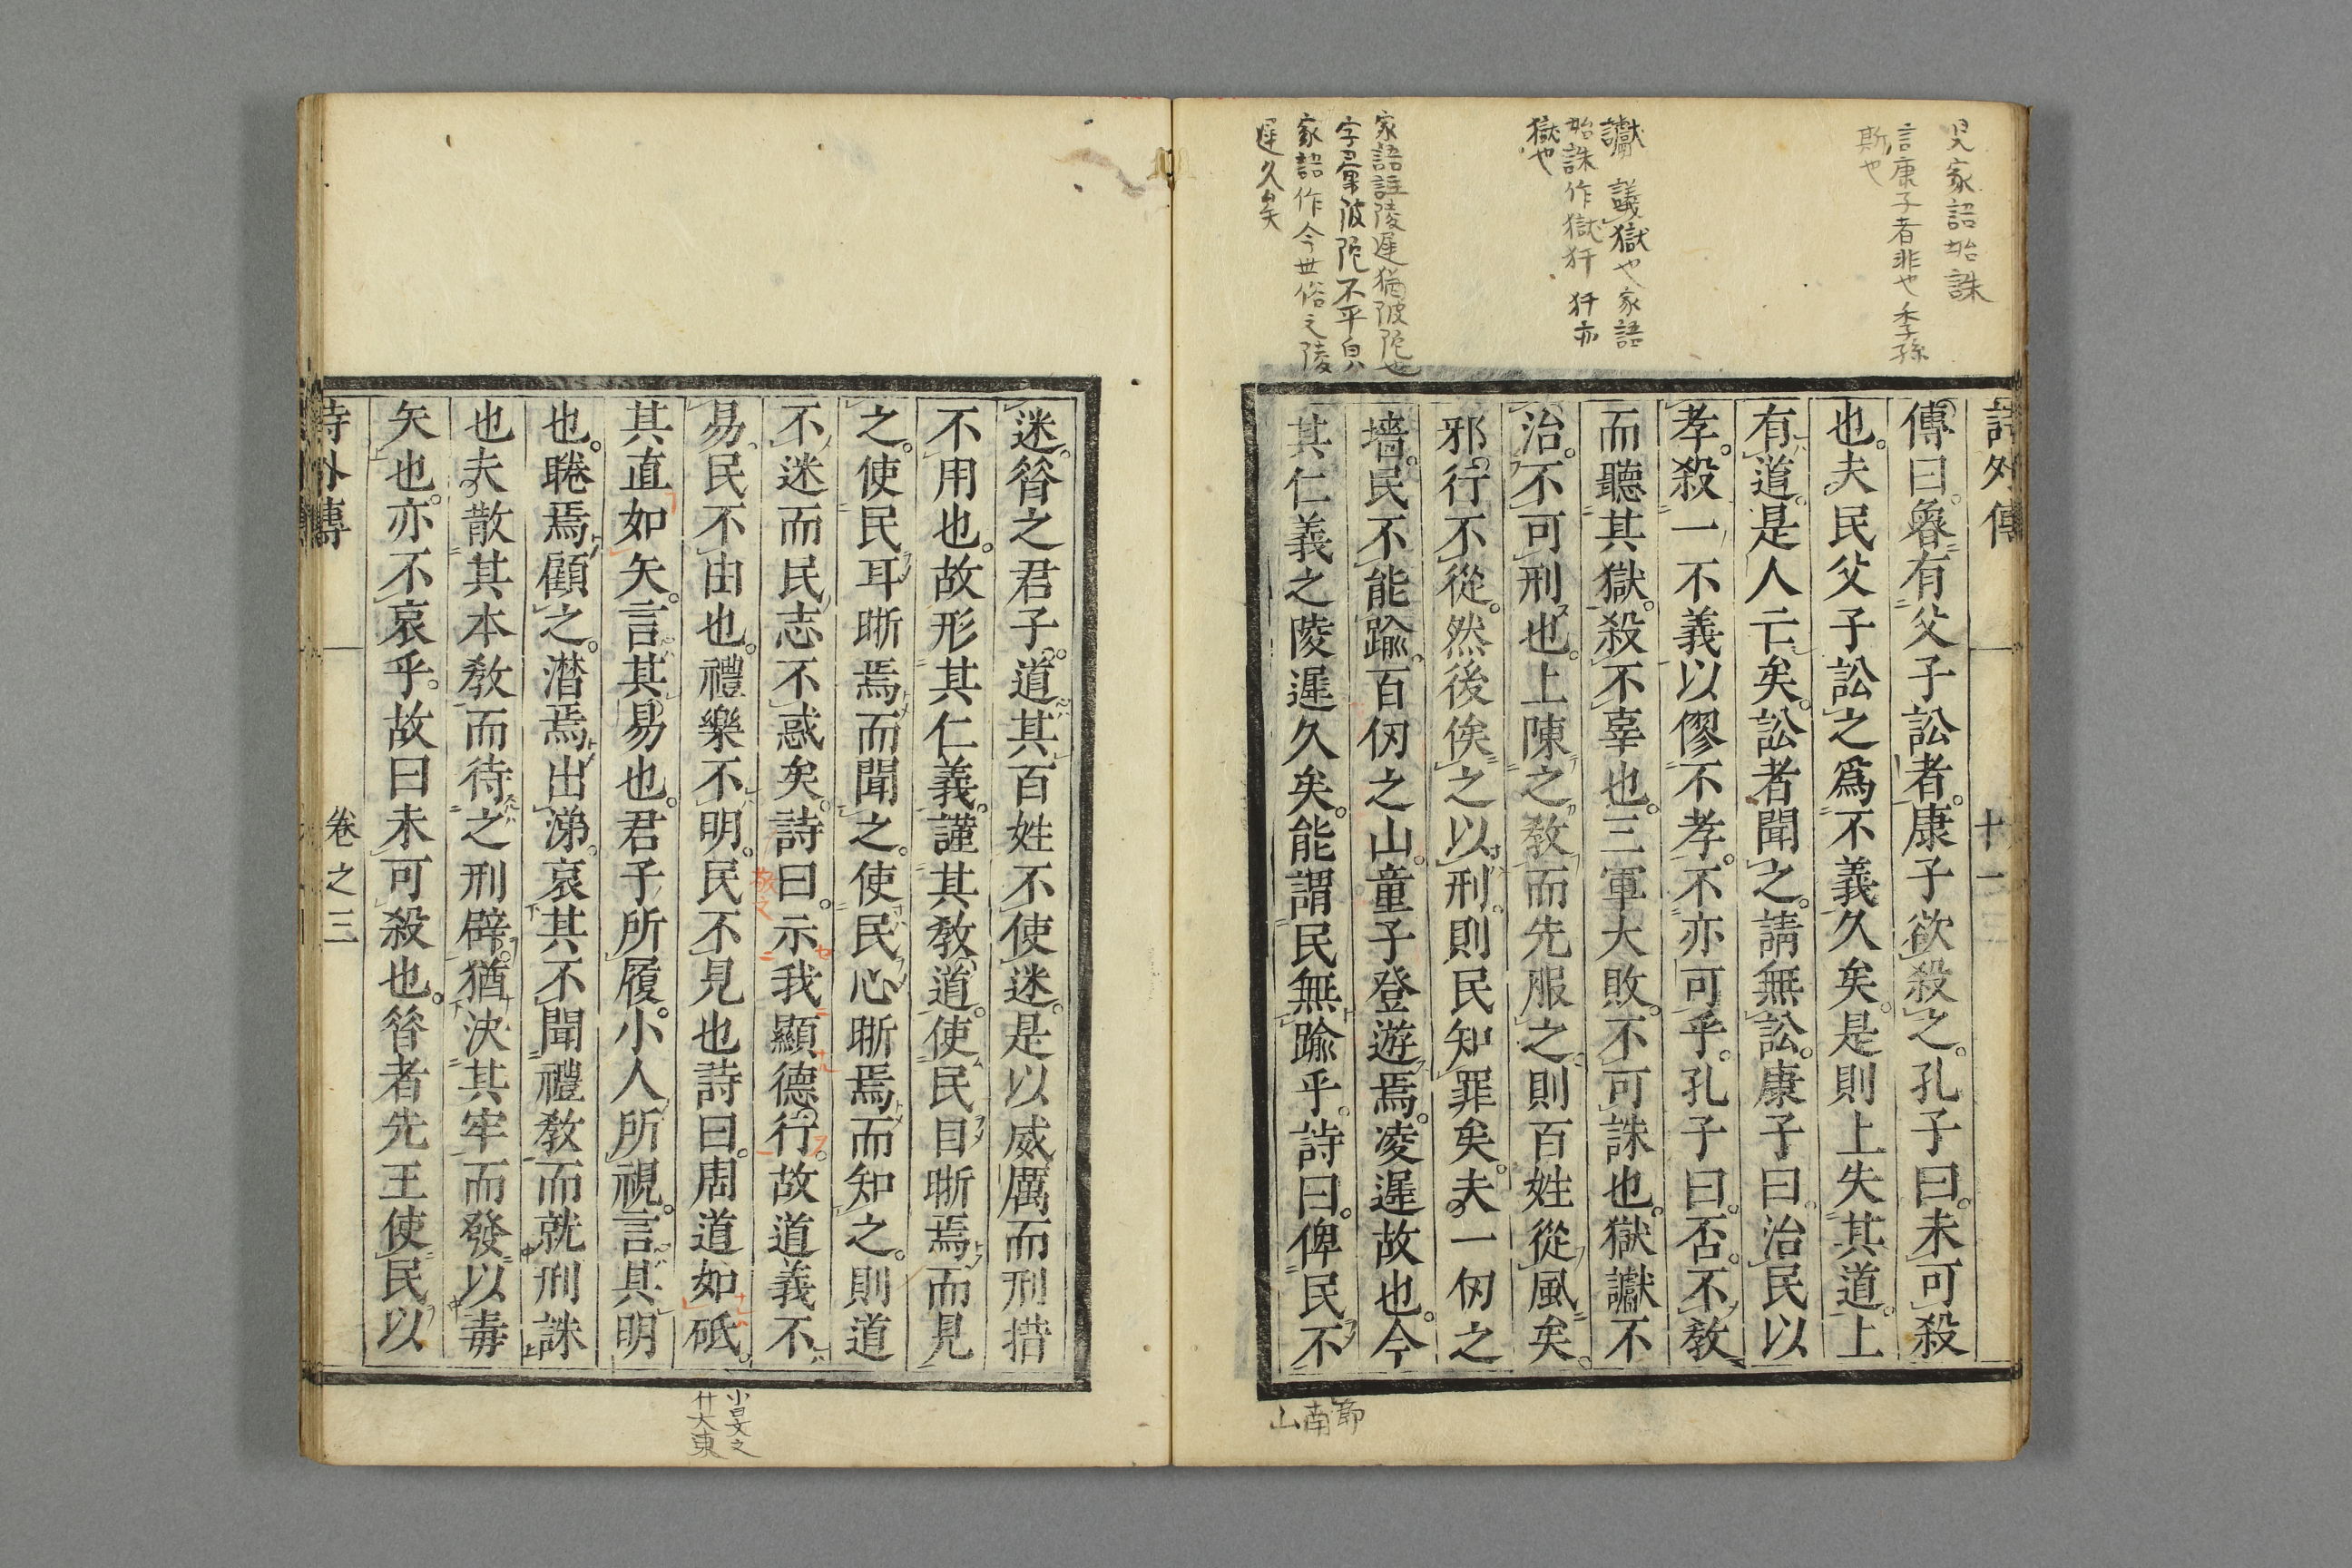 見家語始誅
言康子者非也季孫
斯也
讞議獄也家語
始誅作獄犴犴亦
獄也
家語註陵遲猶陂陀也
字彙陂陀不平皃
家語作今世俗之陵
遲久矣
詩外傳 十二
傳曰魯有父子訟者康子欲殺之孔子曰未可殺
也夫民父子訟之爲不義久矣是則上失其道上
有道是人亡矣訟者聞之請無訟康子曰治民以
孝殺一不義以僇不孝不亦可乎孔子曰否不教
而聽其獄殺不辜也三軍大敗不可誅也獄讞不
治不可刑也上陳之教而先服之則百姓從風矣
邪行不從然後俟之以刑則民知罪矣夫一仞之
墻民不能踰百仞之山童子登遊焉凌遲故也今
其仁義之陵遲久矣能謂民無踰乎詩曰俾民不
節南山
迷昝之君子道其百姓不使迷是以威厲而刑措
不用也故形其仁義謹其教道使民目晣焉而見
之使民耳晣焉而聞之使民心晣焉而知之則道
不迷而民志不惑矣詩曰示我顯德行故道義不
敬之
易民不由也禮樂不明民不見也詩曰周道如砥
其直如矢言其易也君子所履小人所視言其明
也睠焉顧之潸焉出涕哀其不聞禮教而就刑誅
也夫散其本教而待之刑辟猶決其牢而發以毒
矢也亦不哀乎故曰未可殺也昝者先王使民以
小旻之
什大東
詩外傳 卷之三